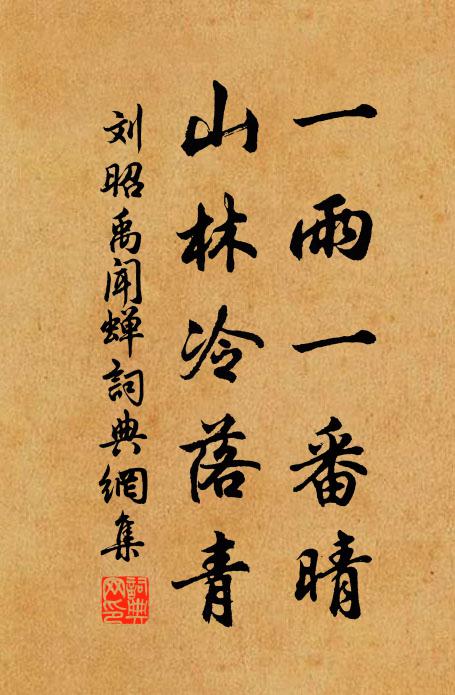 一雨一番晴
山林冷落青
刘昭禹闻蝉詞典網集
詞典网印